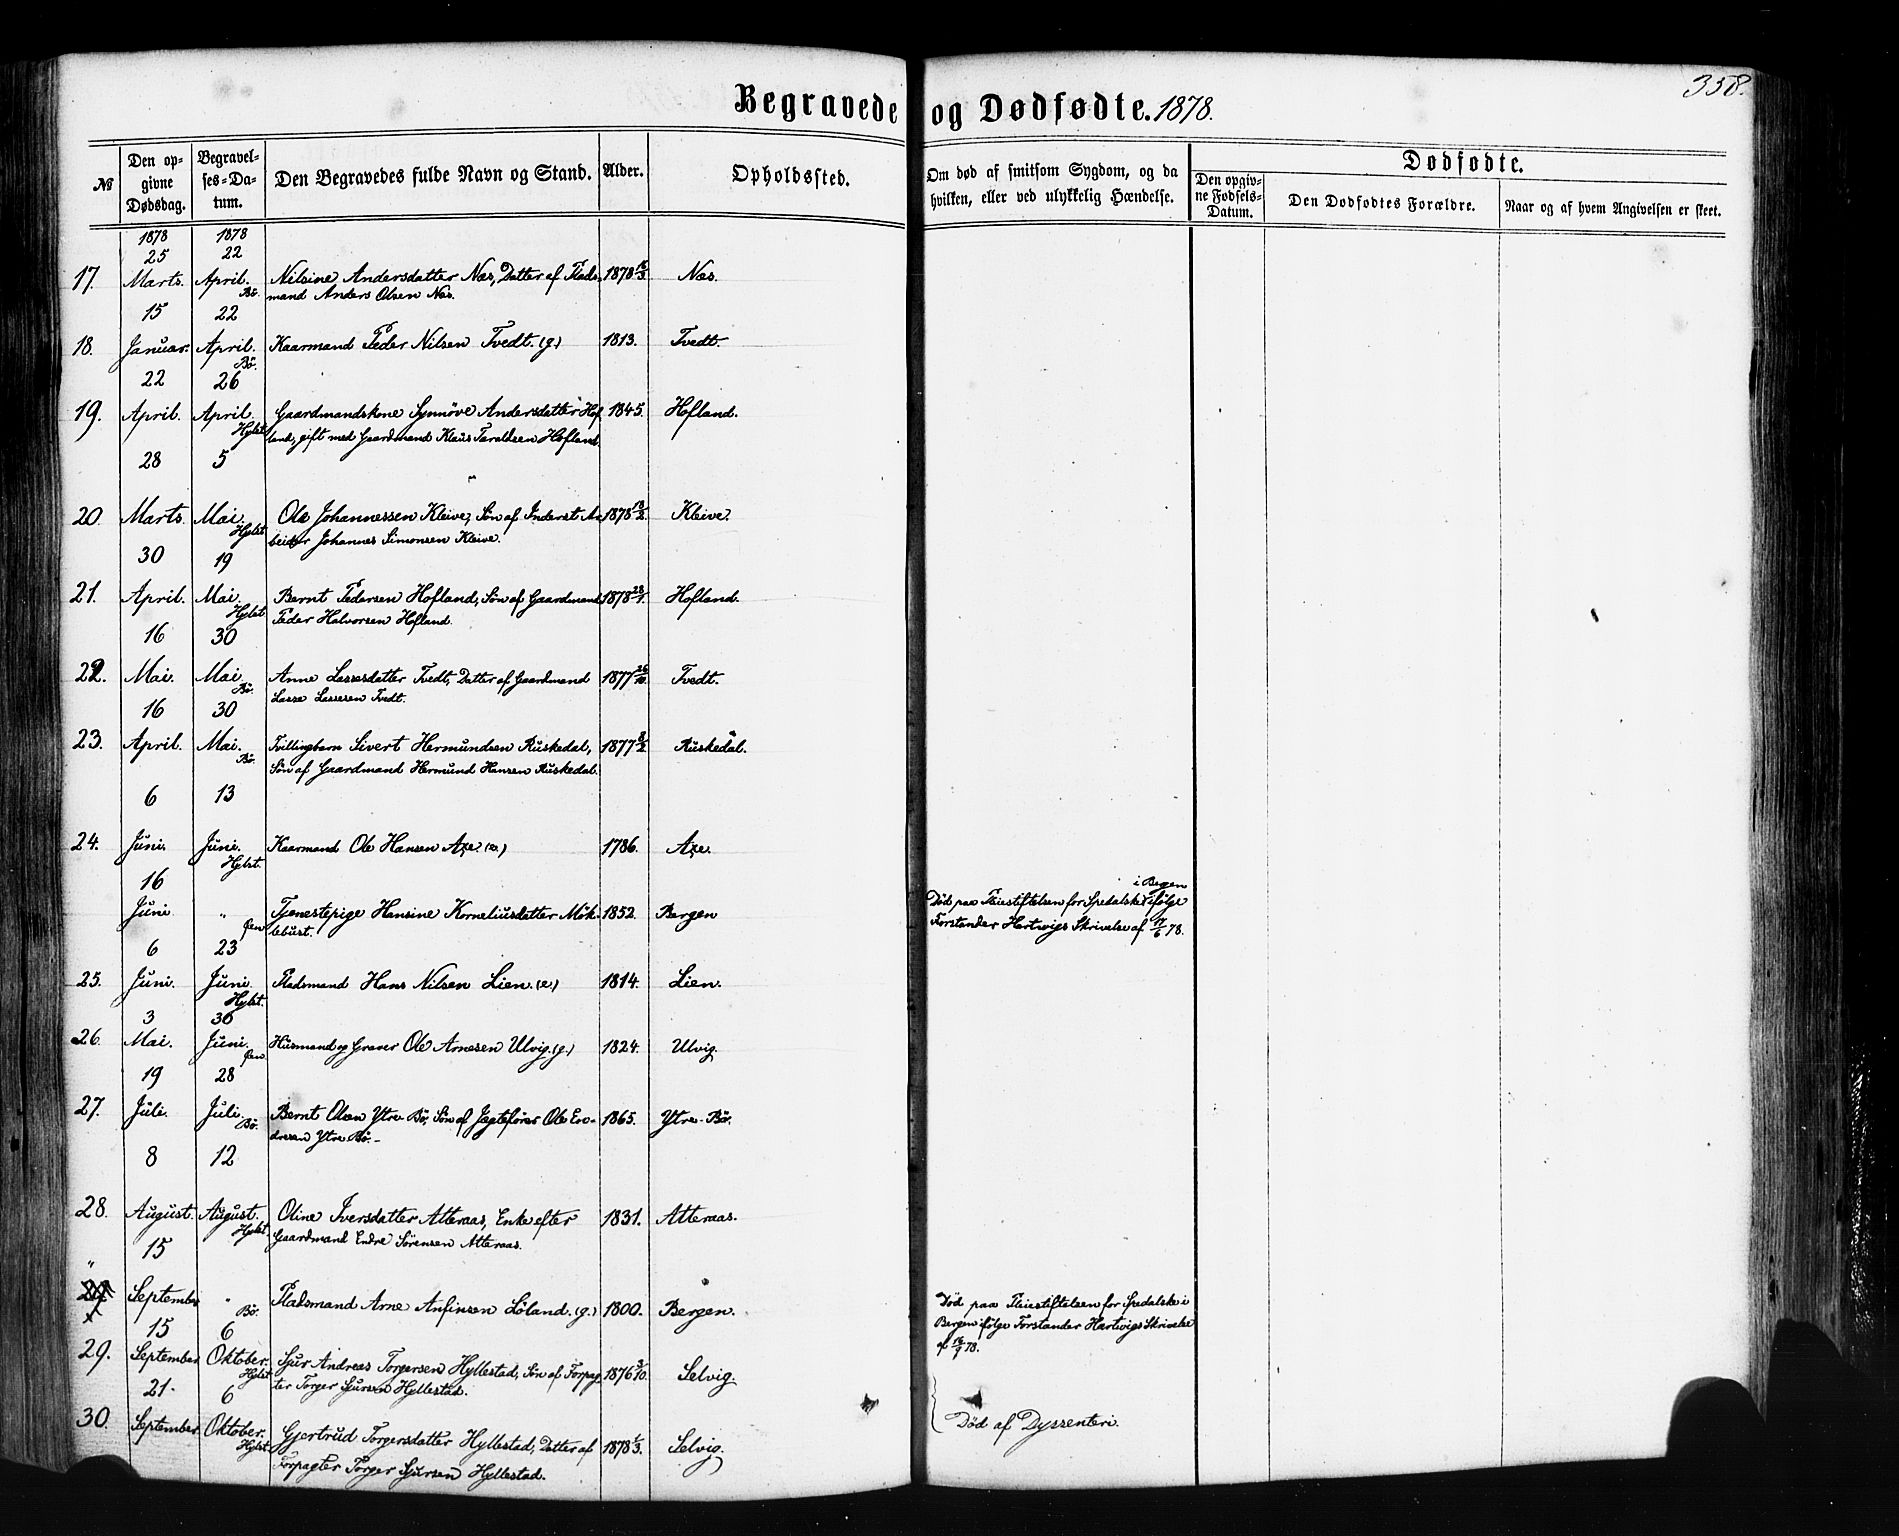 358.
Begravede og Dødfødte. 1878.
№
Den op-
givne
Dødsdag.
Begravel-
ses-Da-
tum.
Den Begravedes fulde Navn og Stand.
Alder.
Opholdssted.
Om død af smitsom Sygdom, og da
hvilken, eller ved ulykkelig Hændelse.
Dødfødte.
Den opgiv-
ne Fødsels-
Datum.
Den Dødfødtes Forældre.
Naar og af hvem Angivelsen er skeet.
1878 1878
25 22
17. Marts. April. Nilsine Andersdatter Næs, Datter af Plads- 1878 16/3. Næs.
Bö. mand Anders Olsen Næs.
15 22
18. Januar. April. Kaarmand Peder Nilsen Tvedt. (g.) 1813. Tvedt.
Bö.
22 26
19. April. April. Gaardmandskone Synnöve Andersdatter Hof- 1845. Hofland.
Hylst. land, gift med Gaardmand Klaus Taraldsen Hofland.
28 5
20. Marts. Mai. Ole Johannessen Kleive, Sön af Inderst Ar- 1878 18/2. Kleive.
Hylst. beider Johannes Simonsen Kleive.
30 19
21. April. Mai. Bernt Pedersen Hofland, Sön af Gaardmand 1878 28/1. Hofland.
Hylst. Peder Halvorsen Hofland.
16 30
22. Mai. Mai. Anne Lassesdatter Tvedt, Datter af Gaardmand 1877 26/10. Tvedt.
Bö. Lasse Lassesen Tvedt.
16 30
23. April. Mai. Tvillingbarn Sivert Hermundsen Ruskedal, 1877 8/2. Ruskedal.
Bö. Sön af Gaardmand Hermund Hansen Ruskedal.
6 13
24. Juni. Juni. Kaarmand Ole Hansen Axe. (e.) 1786. Axe.
Hylst.
16
Juni " Tjenestepige Hansine Korneliusdatter Mök- 1852. Bergen
lebust.
i Bergen
Död paa Pleiestiftelsen for Spedalske ifölge
Forstander Hartwigs Skrivelse af 17/6 78.
6 23
25. Juni. Juni. Pladsmand Hans Nilsen Lien. (e.) 1814. Lien.
Hylst.
3 30
26. Mai. Juni. Husmand og Graver Ole Arnesen Ulvig. (g.) 1824. Ulvig.
19 28
27. Juli. Juli. Bernt Olsen Ytre Bö, Sön af Jægtefører Ole En- 1865. Ytre-Bö.
Bö. dresen Ytre Bö.
8 12
28. August. August. Oline Iversdatter Atteraas, Enke efter 1831. Atteraas.
Hylst. Gaardmand Endre Sörensen Atteraas.
15
29. September " Pladsmand Arne Anfinsen Löland. (g.) 1800. Bergen.
Bö.
Död paa Pleiestiftelsen for Spedalske i
Bergen ifölge Forstander Hartwigs Skrivelse
15 6
29. September. Oktober. Sjur Andreas Torgersen Hyllestad, Sön af Forpag- 1876 3/10. Selvig.
Hylst. ter Torger Sjursen Hyllestad.
21. 6
30. September. Oktober. Gjertrud Torgersdatter Hyllestad, Datter af 1878 1/3. Selvig.
Hylst. Forpagter Torger Sjursen Hyllestad.
Död af Dyssenteri.